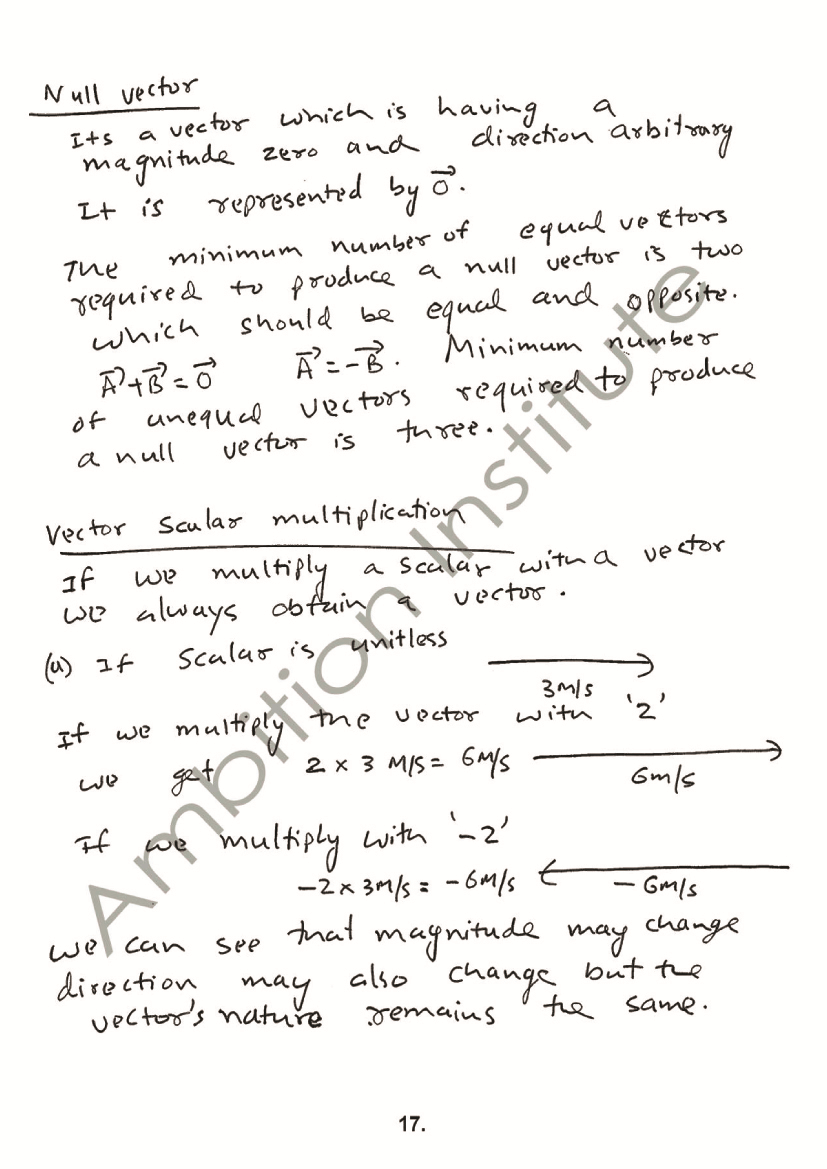 Null vector
Its a vector which is having a
magnitude zero and direction arbitrary
It is represented by 0⃗.
The minimum number of equal vectors
required to produce a null vector is two
which should be equal and opposite.
A⃗+B⃗=0⃗ A⃗=-B⃗. Minimum number
of unequal vectors required to produce
a null vector is three.
Vector Scular multiplication
If we multiply a scalar with a vector
we always obtain a vector.
(a) If Scalar is unitless
3M/s
If we multiply the vector with '2'
we get 2 × 3 M/S = 6M/S
6m/s
If we multiply with '-2'
-2 × 3M/s = -6M/S
-6M/s
we can see that magnitude may change
direction may also change but the
vector's nature remains the same.
17.
Ambition Institute